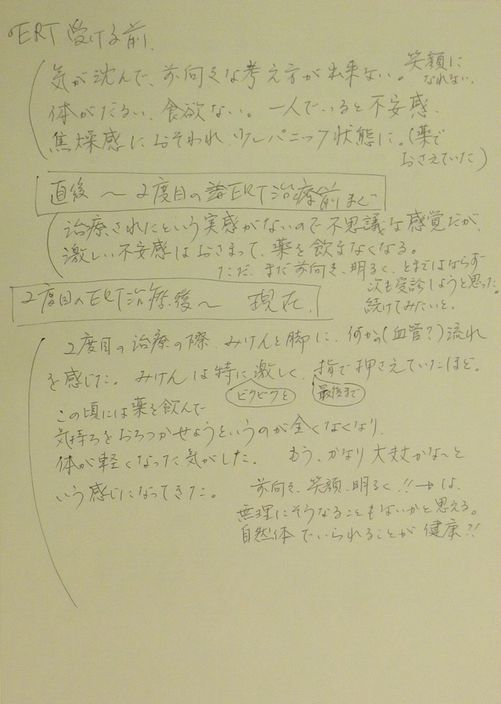 ERT 受ける前、
気が沈んで、前向きな考え方が出来ない。笑顔に
なれない。
体がだるい、食欲ない。一人でいると不安感、
焦燥感におそわれ少しパニック状態に。(薬で
おさえていた)
直後 〜 2度目の ERT治療前まで
治療されたという実感がないので不思議な感覚だが、
激しい不安感はおさまって、薬を飲まなくなる。
ただ、まだ前向き、明るく、とまではならず
次も受診しようと思った。
続けてみたいと。
2度目のERT治療後〜 現在、
2度目の治療の際、みけんと脚に、何か(血管?)流れ
を感じた。みけんは特に激しく、指で押さえていたほど。
ピクピクと 最後まで
この頃には薬を飲んで
気持ちをおちつかせようというのが全くなくなり、
体が軽くなった気がした。 もう、かなり大丈夫かな〜と
いう感じになってきた。
前向き、笑顔、明るく!!→は、
無理にそうなることもないかと思える。
自然体でいられることが健康?!